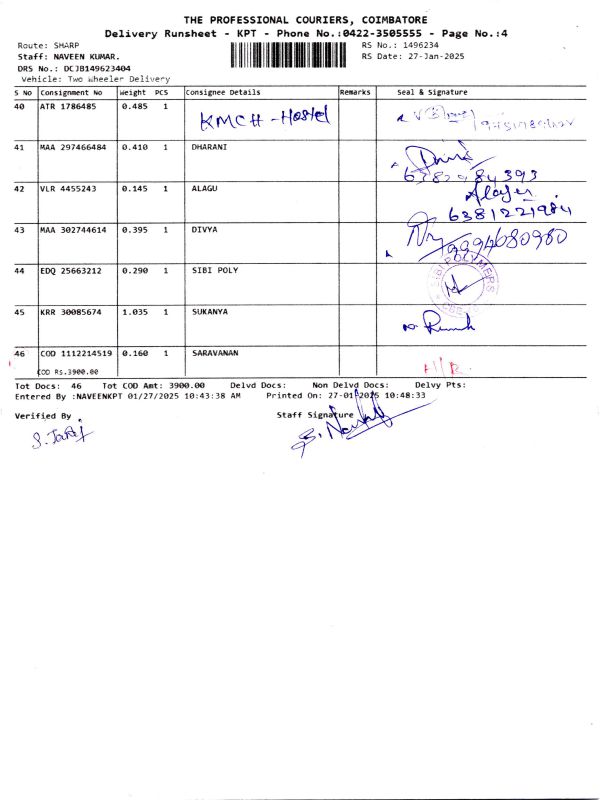 THE PROFESSIONAL COURIERS, COIMBATORE
Delivery Runsheet - KPT - Phone No.:0422-3505555 - Page No.:4
Route: SHARP
RS No.: 1496234
Staff: NAVEEN KUMAR.
RS Date: 27-Jan-2025
DRS No.: DCJB149623404
Vehicle: Two Wheeler Delivery
S No Consignment No Weight PCS Consignee Details Remarks Seal & Signature
40 ATR 1786485 0.485 1 KMCH - Hostel
41 MAA 297466484 0.410 1 DHARANI
6382984393
42 VLR 4455243 0.145 1 ALAGU
6381221984
43 MAA 302744614 0.395 1 DIVYA 9994680980
44 EDQ 25663212 0.290 1 SIBI POLY SIBI POLYMERS
45 KRR 30085674 1.035 1 SUKANYA
46 COD 1112214519 0.160 1 SARAVANAN
COD RS.3900.00
Tot Docs: 46 Tot COD Amt: 3900.00 Delvd Docs: Non Delvd Docs: Delvy Pts:
Entered By :NAVEENKPT 01/27/2025 10:43:38 AM Printed On: 27-01-2025 10:48:33
Verified By Staff Signature